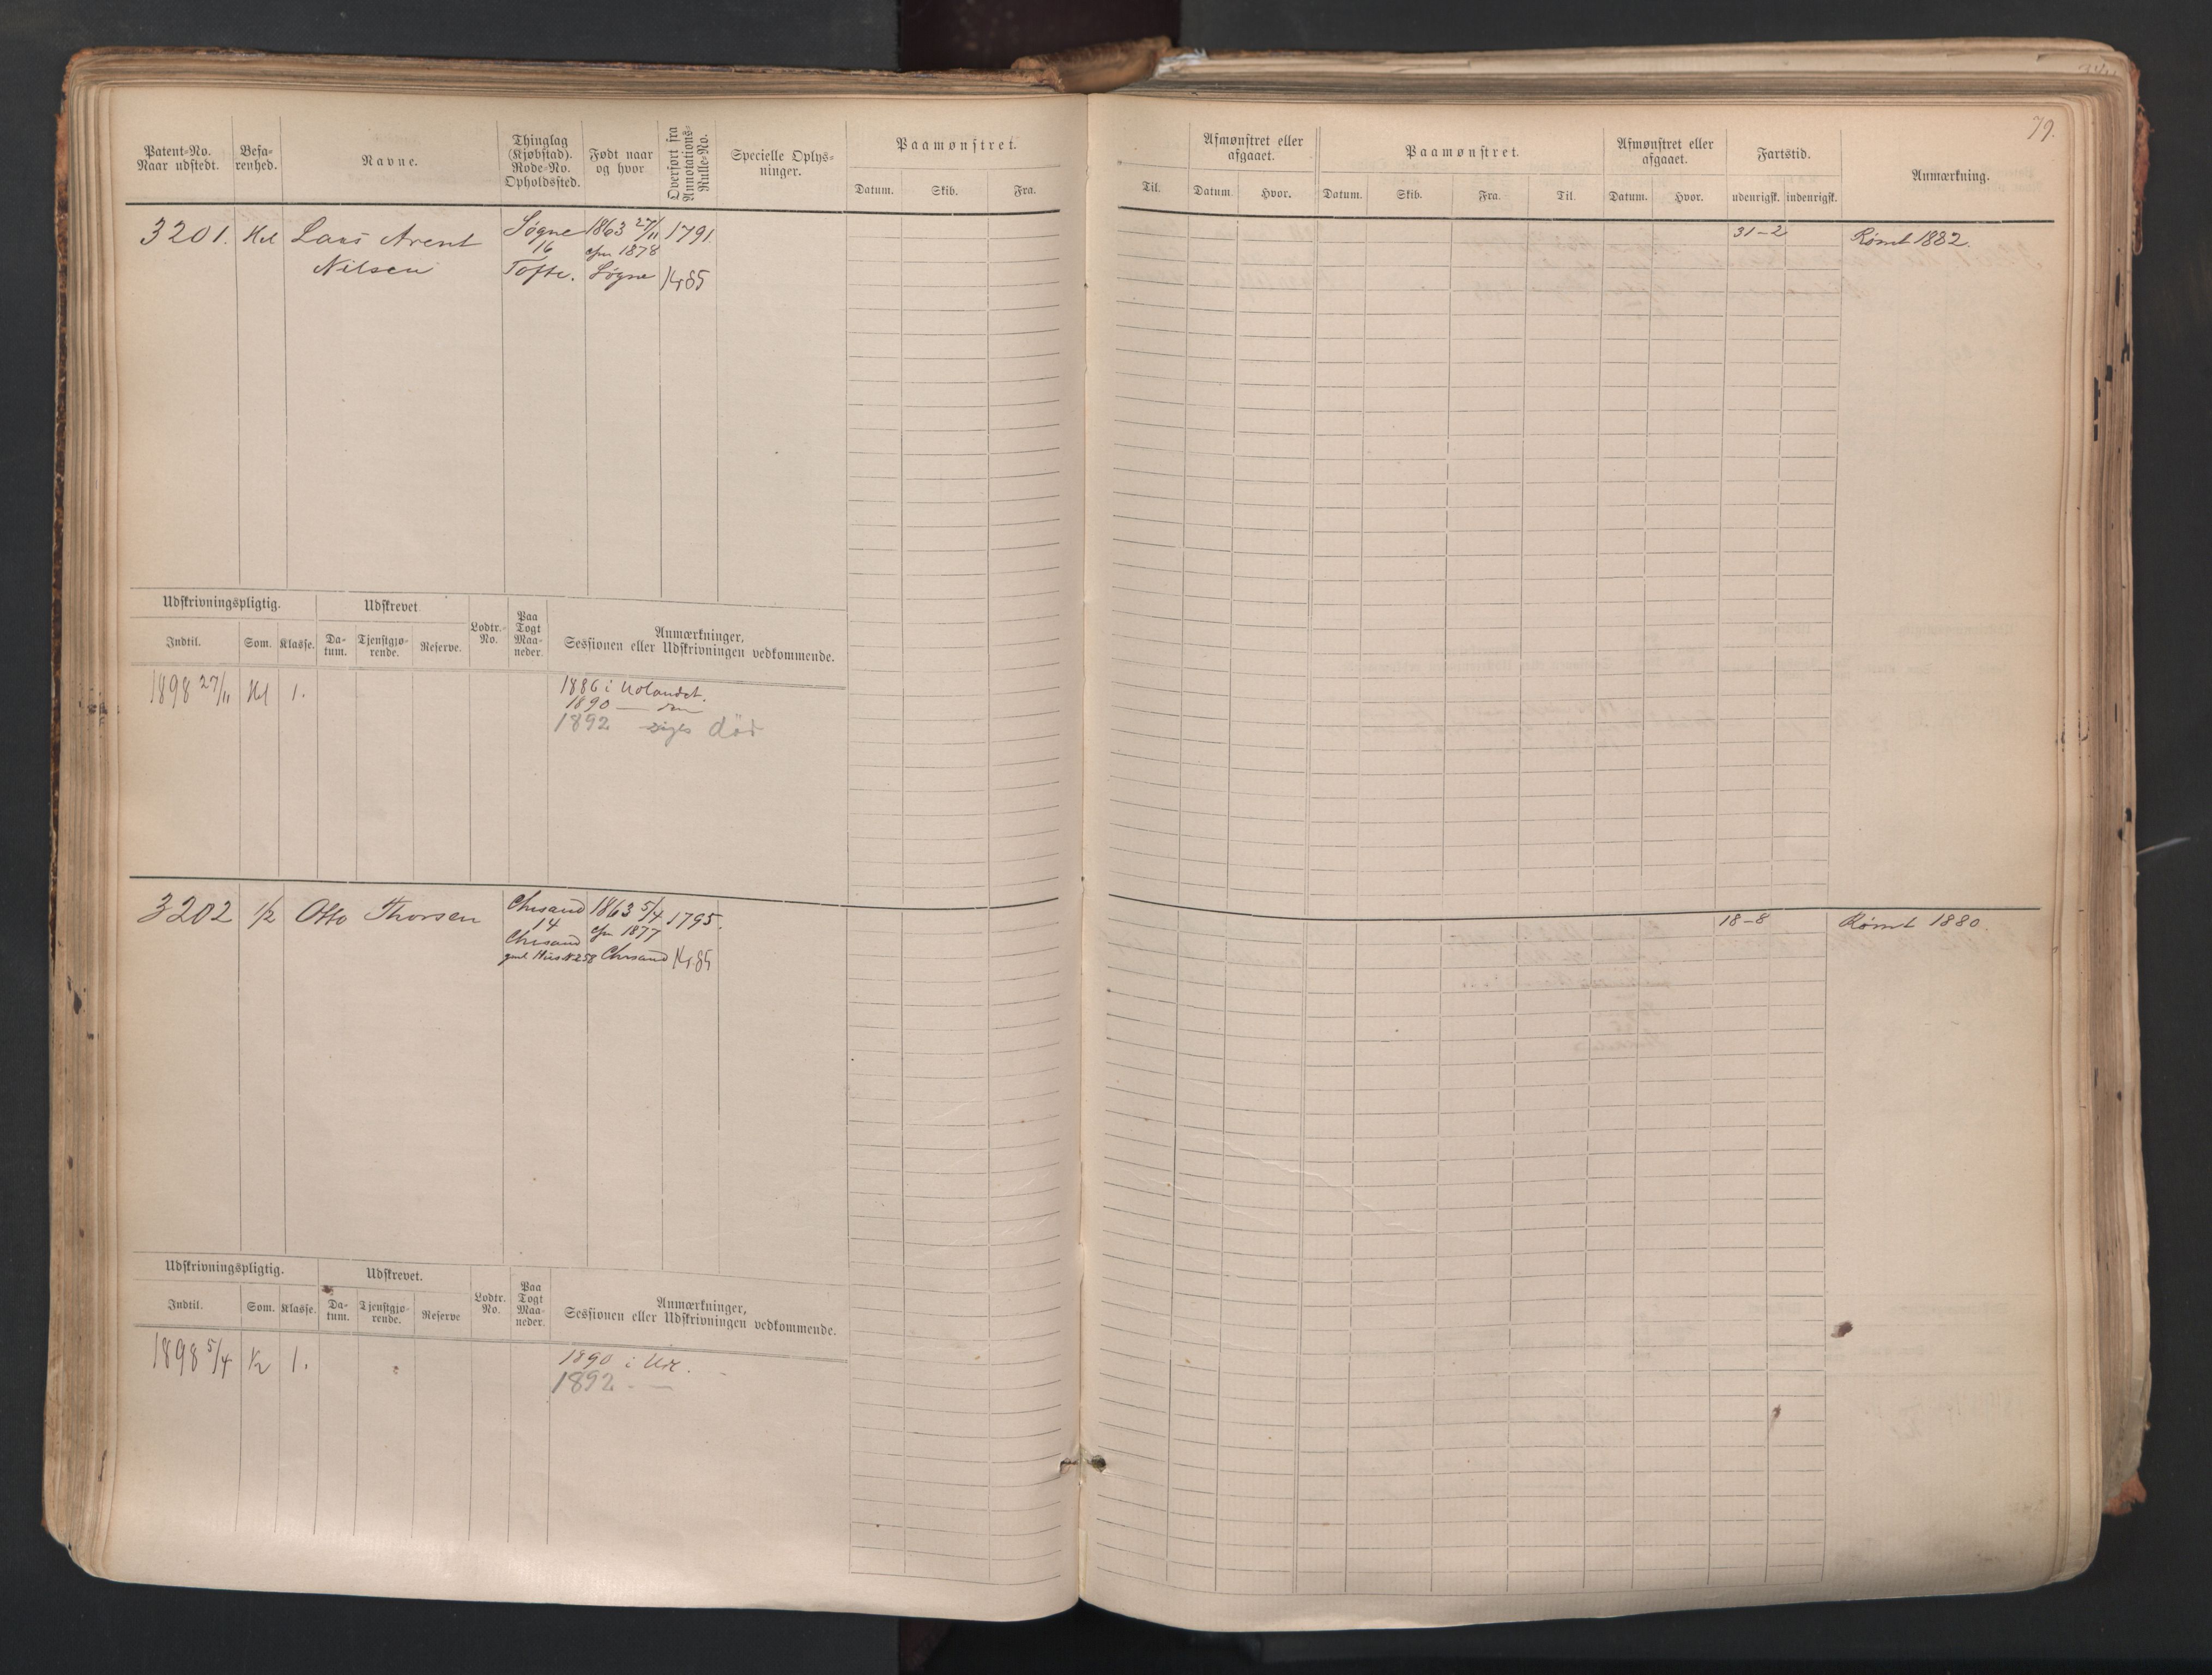 79.
Patent-No. Naar udstedt.
Befarenhed.
Navne.
Thinglag (Kjøbstad). Rode-No. Opholdssted.
Født naar og hvor
Overført fra Annotations-Rulle-No.
Specielle Oplysninger.
Paamønstret.
Datum. Skib. Fra.
Til.
Afmønstret eller afgaaet.
Datum. Hvor.
Paamønstret.
Datum. Skib. Fra. Til.
Afmønstret eller afgaaet.
Datum. Hvor.
Fartstid.
udenrigsk. indenrigsk.
Anmærkning.
3201. Hel Lars Arent Søgne 1863 27/11 1791.
16 1878
Nilsen Tofte. Søgne 85
31-2 Rømt 1882.
Udskrivningspligtig. Udskrevet Lodtr.-No. Paa Togt Maaneder. Anmærkninger, Sessionen eller Udskrivningen vedkommende.
Indtil. Som. Klasse. Datum. Tjenstgjørende. Reserve.
1898 27/11 Hel 1. 1886 i Udlandet.
1890 — do
1892 siges död
3202 1/2 Otto Thorsen Chrsand 1863 5/4 1795.
14 1877
Chrsand
gml Hus N 258 Chrsand 85
18-8 Rømt 1880.
Udskrivningspligtig. Udskrevet. Lodtr. No. Paa Togt Maaneder. Anmærkninger, Sessionen eller Udskrivningen vedkommende.
Indtil. Som. Klasse. Datum. Tjenstgjørende. Reserve
1898 5/4 1/2 1. 1890 i Udl.
1892 - —